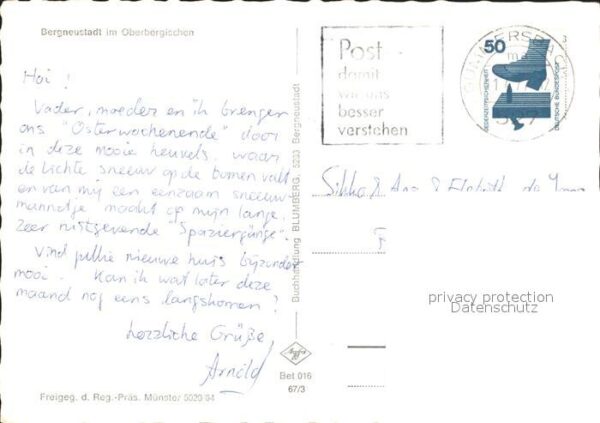 Bergneustadt im Oberbergischen
Hoi!
Vader, moeder en ik brengen
ons "Osterwochenende" door
in deze mooie heuvels, waar
de lichte sneeuw op de bomen valt
en van mij een eenzaam sneeuw-
mannetje maakt op mijn lange,
zeer rustgevende "Spaziergänge".
Vind jullie nieuwe huis bijzonder
mooi. Kan ik wat later deze
maand nog eens langskomen?
Herzliche Grüße
Arnold
Freigeg. d. Reg.-Präs. Münster 5023/94
Buchhandlung BLUMBERG, 5223 Bergneustadt
Agfa
Bet 016
67/3
Post
damit
wir uns
besser
verstehen
GUMMERSBACH
50
JEDERZEIT SICHERHEIT
DEUTSCHE BUNDESPOST
3
& Ana & de
privacy protection
Datenschutz